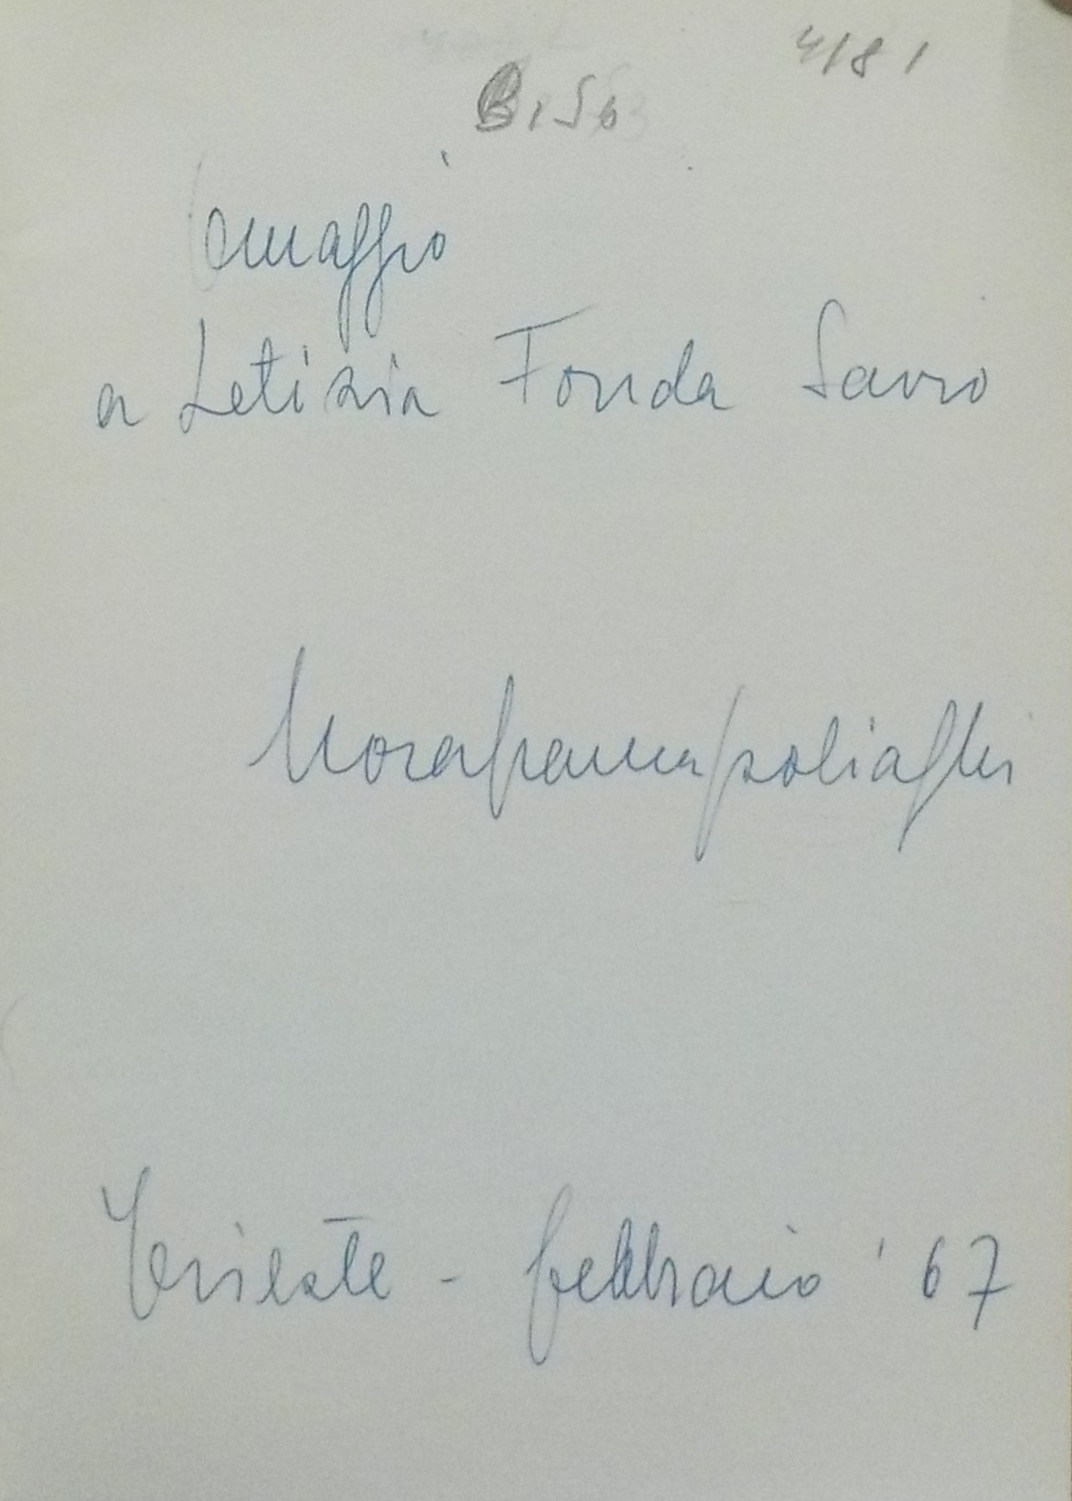 4181
B 156
Omaggio
a Letizia Fonda Savio
Norafrancapoliaghi
Trieste - febbraio '67